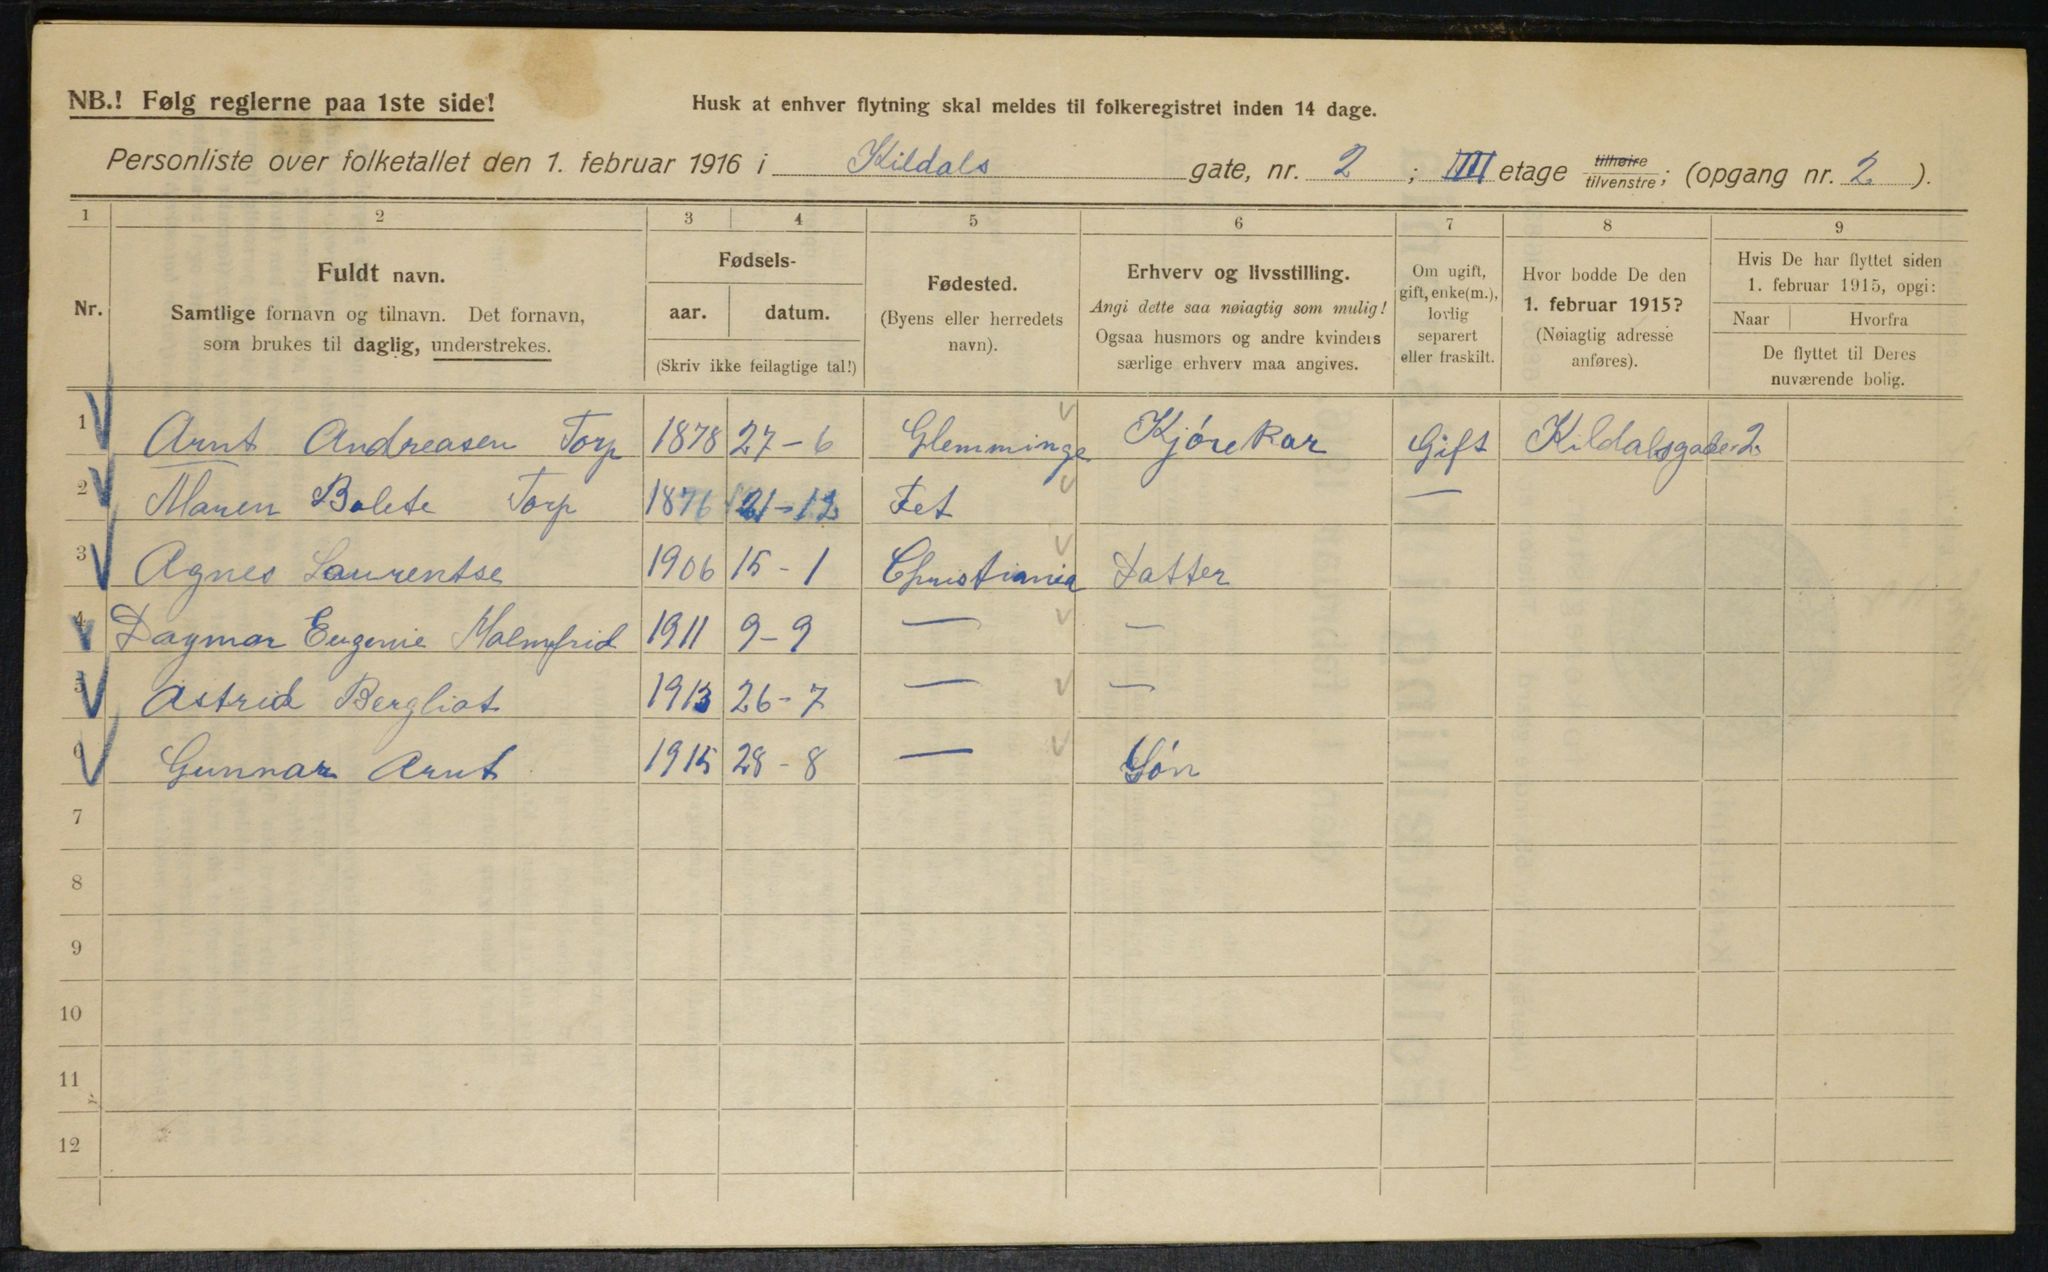 NB.! Følg reglerne paa 1ste side!
Husk at enhver flytning skal meldes til folkeregistret inden 14 dage.
Personliste over folketallet den 1. februar 1916 i Kildals gate, nr. 2 ; III etage tilhøire tilvenstre; (opgang nr. 2 ).
1 2 3 4 5 6 7 8 9
Nr.
Fuldt navn.
Samtlige fornavn og tilnavn. Det fornavn,
som brukes til daglig, understrekes.
Fødsels-
aar. datum.
(Skriv ikke feilagtige tal!)
Fødested.
(Byens eller herredets
navn).
Erhverv og livsstilling.
Angi dette saa nøiagtig som mulig!
Ogsaa husmors og andre kvinders
særlige erhverv maa angives.
Om ugift,
gift, enke(m.),
lovlig
separert
eller fraskilt.
Hvor bodde De den
1. februar 1915?
(Nøiagtig adresse
anføres).
Hvis De har flyttet siden
1. februar 1915, opgi:
Naar Hvorfra
De flyttet til Deres
nuværende bolig.
1 Arnt Andreasen Torp 1878 27-6 Glemminge Kjørekar Gift Kildalsgade 2
2 Maren Bolete Torp 1876 21-12 Fet —
3 Agnes Laurentse 1906 15-1 Christiania Datter
4 Dagmar Eugenie Malmfrid 1911 9-9 — —
5 Astrid Bergliot 1913 26-7 — —
6 Gunnar Arnt 1915 28-8 — Søn
7
8
9
10
11
12